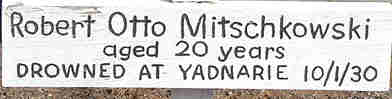 Robert Otto Mitschkowski
aged 20 years
DROWNED AT YADNARIE 10/1/30